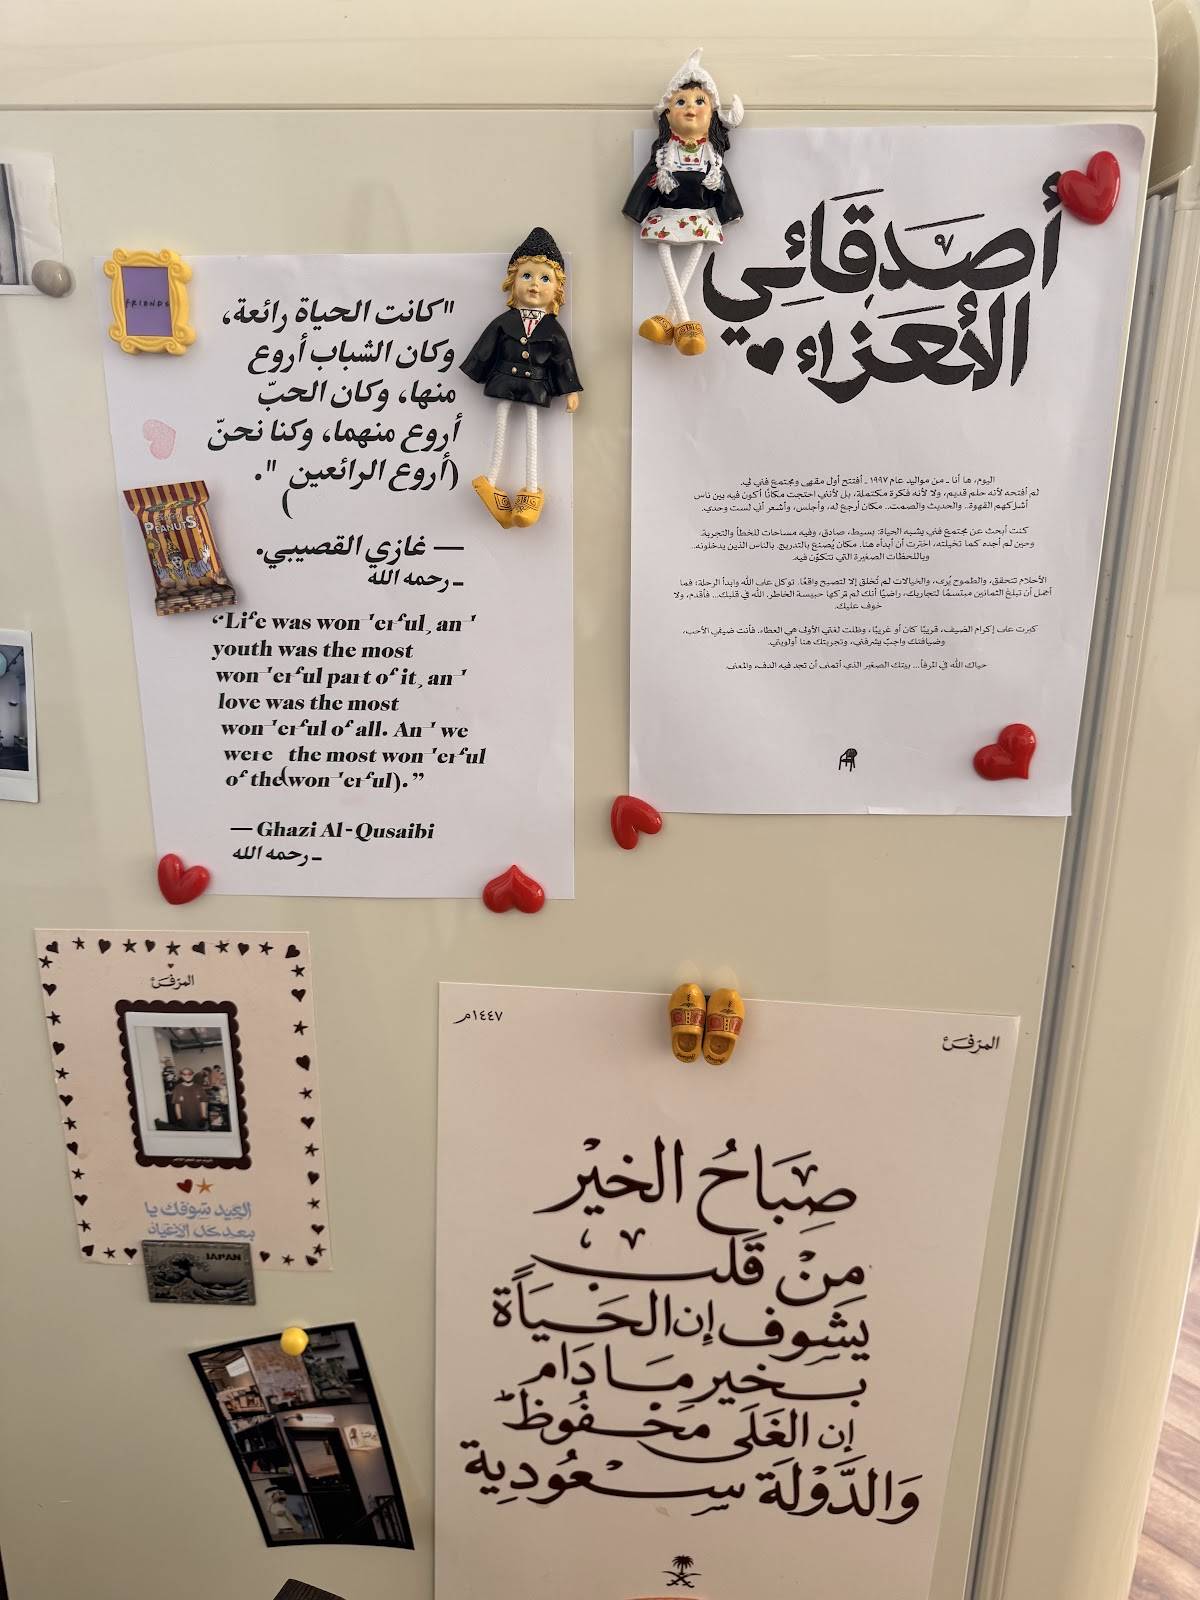 FRIENDS
"كانت الحياة رائعة،
وكان الشباب أروع
منها، وكان الحبّ
أروع منهما، وكنا نحنّ
(أروع الرائعين) ".
— غازي القصيبي.
ـ رحمه الله
PEANUTS
“Life was wonderful, and
youth was the most
wonderful part of it, and
love was the most
wonderful of all. And we
were the most wonderful
of the (wonderful).”
— Ghazi Al-Qusaibi
ـ رحمه الله
أصدقائي
الأعزاء
اليوم، ها أنا ـ من مواليد عام ١٩٩٧ ـ أفتتح أول مقهى ومجتمع فني لي.
لم أفتحه لأنه حلم قديم، ولا لأنه فكرة مكتملة، بل لأنني احتجت مكانًا أكون فيه بين ناس
أشاركهم القهوة.. والحديث والصمت.. مكان أرجع له، وأجلس، وأشعر أني لست وحدي.
كنت أبحث عن مجتمع فني يشبه الحياة: بسيط، صادق، وفيه مساحات للخطأ والتجربة.
وحين لم أجده كما تخيلته، اخترت أن أبدأه هنا. مكان يُصنع بالتدريج. بالناس الذين يدخلونه..
وباللحظات الصغيرة التي تتكوّن فيه.
الأحلام تتحقق، والطموح يُرى، والخيالات لم تُخلق إلا لتصبح واقعًا. توكل على الله وابدأ الرحلة؛ فما
أجمل أن تبلغ الثمانين مبتسمًا لتجاربك، راضيًا أنك لم تتركها حبيسة الخاطر. الله في قلبك... فأقدم، ولا
خوف عليك.
كبرت على إكرام الضيف، قريبًا كان أو غريبًا، وظلت لغتي الأولى هي العطاء. فأنت ضيفي الأحب،
وضيافتك واجبٌ يشرفني، وتجربتك هنا أولويتي.
حياك الله في المرفأ... بيتك الصغير الذي أتمنى أن تجد فيه الدفء والمعنى.
المرفئ
العيد شوفك يا
بعد كل الأعياد
JAPAN
المرفئ
١٤٤٧م
صباحُ الخير
مِنْ قَلب
يشوف إن الحَيَاة
بخير مَا دَام
إن الغَلَى مَحْفُوظ
وَالدَّوْلَة سعُودِية